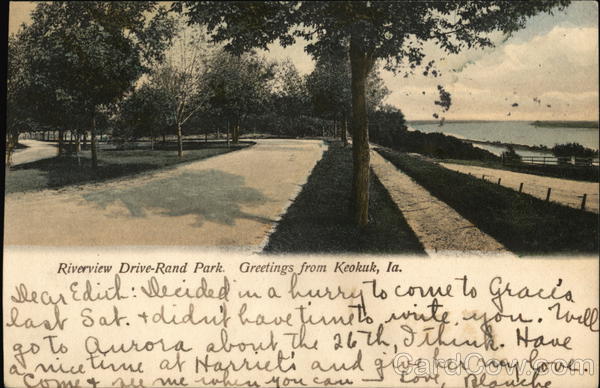 Riverview Drive-Rand Park. Greetings from Keokuk, Ia.
Dear Edith: Decided in a hurry to come to Grace's
last Sat. + didn't have time to write you. Will
go to Aurora about the 26th, I think. Have
a nice time at Harriet's and give her my love.
Come + see me when you can Blanche
CardCow.com